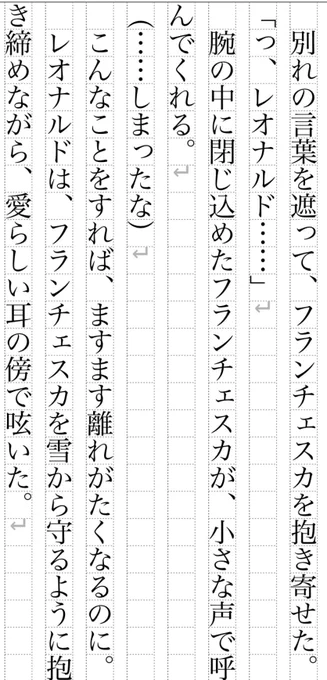 別れの言葉を遮って、フランチェスカを抱き寄せた。
「っ、レオナルド……」
　腕の中に閉じ込めたフランチェスカが、小さな声で呼
んでくれる。
（……しまったな）
　こんなことをすれば、ますます離れがたくなるのに。
　レオナルドは、フランチェスカを雪から守るように抱
き締めながら、愛らしい耳の傍で呟いた。